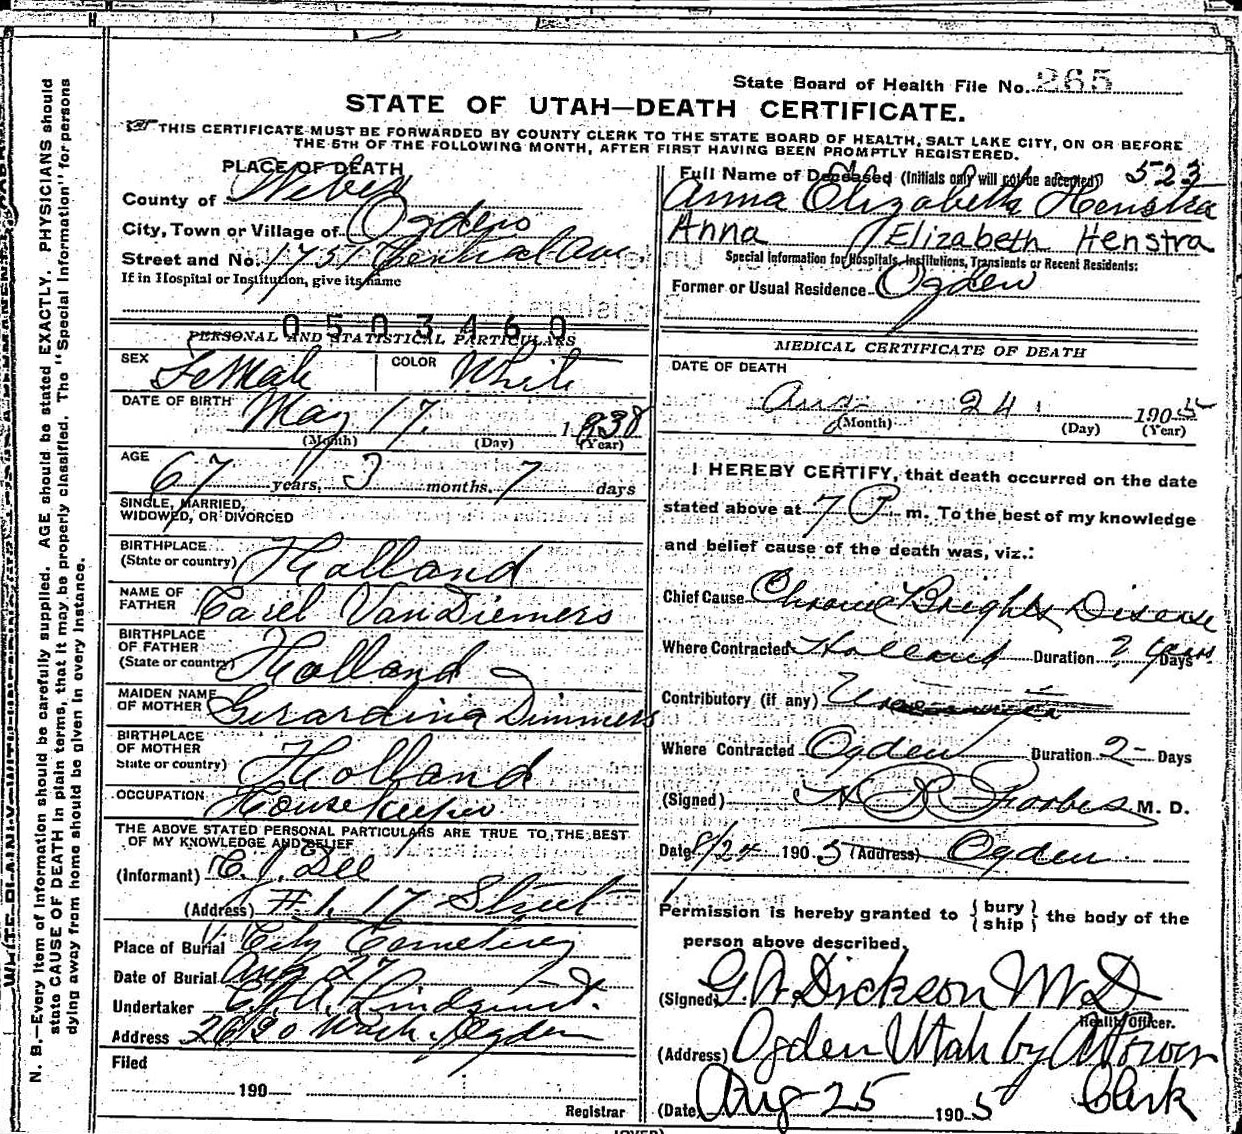 State Board of Health File No. 265
STATE OF UTAH—DEATH CERTIFICATE.
THIS CERTIFICATE MUST BE FORWARDED BY COUNTY CLERK TO THE STATE BOARD OF HEALTH, SALT LAKE CITY, ON OR BEFORE
THE 5TH OF THE FOLLOWING MONTH, AFTER FIRST HAVING BEEN PROMPTLY REGISTERED.
PLACE OF DEATH
County of Weber
City, Town or Village of Ogden
Street and No. 1757 Central Ave
If in Hospital or Institution, give its name
0503460
PERSONAL AND STATISTICAL PARTICULARS
SEX Female COLOR White
DATE OF BIRTH May 17, 1838
(Month) (Day) (Year)
AGE 67 years, 3 months. 7 days
SINGLE, MARRIED,
WIDOWED, OR DIVORCED
BIRTHPLACE
(State or country) Holland
NAME OF
FATHER Carel Van Diemers
BIRTHPLACE
OF FATHER
(State or country) Holland
MAIDEN NAME
OF MOTHER Gerardina Dimmers
BIRTHPLACE
OF MOTHER
State or country) Holland
OCCUPATION Housekeeper
THE ABOVE STATED PERSONAL PARTICULARS ARE TRUE TO THE BEST
OF MY KNOWLEDGE AND BELIEF
(Informant) C. J. Dee
(Address) #1, 17 Street
Place of Burial City Cemetery
Date of Burial Aug 27
Undertaker C. J. A. Lindquist.
Address 2620 Wash. Ogden
Filed
190
Registrar
523
Full Name of Deceased (Initials only will not be accepted)
Anna Elizabeth Henstra
Anna Elizabeth Henstra
Special Information for Hospitals, Institutions, Transients or Recent Residents:
Former or Usual Residence Ogden
MEDICAL CERTIFICATE OF DEATH
DATE OF DEATH
Aug 24 1905
(Month) (Day) (Year)
I HEREBY CERTIFY, that death occurred on the date
stated above at 7 P m. To the best of my knowledge
and belief cause of the death was, viz.:
Chief Cause Chronic Brights Disease
Where Contracted Holland Duration 2 years Days
Contributory (if any)
Where Contracted Ogden Duration 2 Days
(Signed) Forbes M. D.
Date 8/24 1905 (Address) Ogden
Permission is hereby granted to { bury ship } the body of the
person above described,
(Signed) G A Dickson M D
Health Officer.
(Address) Ogden Utah by
(Date) Aug 25 1905 Clerk
N. B.—Every item of information should be carefully supplied. AGE should be stated EXACTLY. PHYSICIANS should
state CAUSE OF DEATH in plain terms, that it may be properly classified. The "Special Information" for persons
dying away from home should be given in every instance.
(OVER)